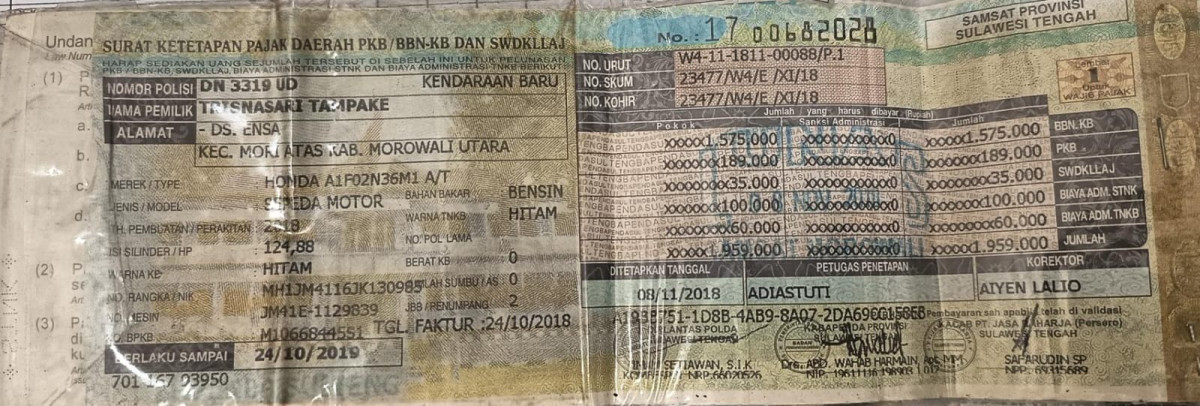 SURAT KETETAPAN PAJAK DAERAH PKB/BBN-KB DAN SWDKLLAJ
HARAP SEDIAKAN UANG SEJUMLAH TERSEBUT DI SEBELAH INI UNTUK PELUNASAN
PKB / BBN-KB, SWDKLLAJ, BIAYA ADMINISTRASI STNK DAN BIAYA ADMINISTRASI TNKB BERIKUT
NOMOR POLISI DN 3319 UD KENDARAAN BARU
NAMA PEMILIK TRISNASARI TAMPAKE
ALAMAT - DS. ENSA
KEC. MORI ATAS KAB. MOROWALI UTARA
MEREK / TYPE : HONDA A1F02N36M1 A/T
JENIS / MODEL : SEPEDA MOTOR
TH. PEMBUATAN / PERAKITAN : 2018
ISI SILINDER / HP : 124,88
WARNA KB : HITAM
NO. RANGKA / NIK : MH1JM4116JK130985
NO. MESIN : JM41E-1129839
NO. BPKB : M1066844551
BAHAN BAKAR : BENSIN
WARNA TNKB : HITAM
NO. POL LAMA :
BERAT KB : 0
JUMLAH SUMBU / AS : 0
JBB / PENUMPANG : 2
TGL. FAKTUR :24/10/2018
BERLAKU SAMPAI 24/10/2019
701 167 03950
No. : 17 00682028
SAMSAT PROVINSI
SULAWESI TENGAH
NO. URUT W4-11-1811-00088/P.1
NO. SKUM 23477/W4/E /XI/18
NO. KOHIR 23477/W4/E /XI/18
1
WAJIB PAJAK
Jumlah yang harus dibayar (Rupiah)
Pokok Sanksi Administrasi Jumlah
xxxxx1.575.000 xxxxxxxxxxxxx0 xxxxx1.575.000 BBN.KB
xxxxxxx189.000 xxxxxxxxxxxxx0 xxxxxxx189.000 PKB
xxxxxxxx35.000 xxxxxxxxxxxxx0 xxxxxxxx35.000 SWDKLLAJ
xxxxxxx100.000 xxxxxxxxxxxxx0 xxxxxxx100.000 BIAYA ADM. STNK
xxxxxxxx60.000 xxxxxxxxxxxxx0 xxxxxxxx60.000 BIAYA ADM.TNKB
xxxxx1.959.000 xxxxxxxxxxxxx0 xxxxx1.959.000 JUMLAH
DITETAPKAN TANGGAL PETUGAS PENETAPAN KOREKTOR
08/11/2018 ADIASTUTI AIYEN LALIO
Pembayaran sah apabila telah di validasi
KACAB PT. JASA RAHARJA (Persero)
SULAWESI TENGAH
Drs. ABD. WAHAB HARMAIN, Apt, MM
SAFARUDIN SP
NPP. 69315689